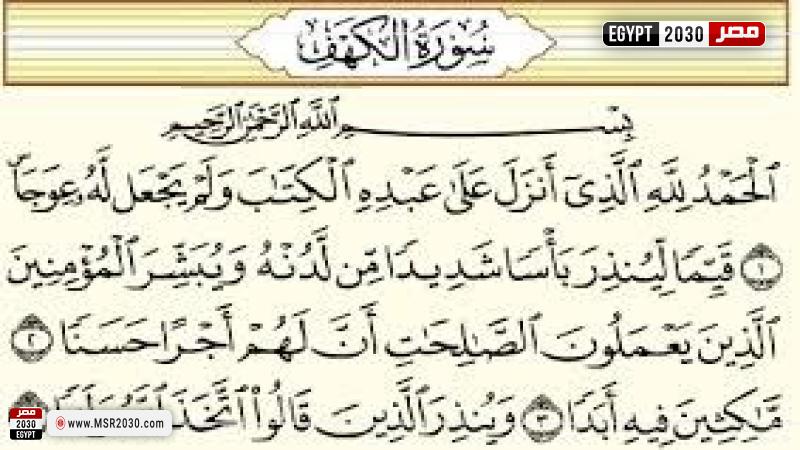 سُورَةُ الكَهْفِ
EGYPT 2030 مصر
بِسْمِ اللَّهِ الرَّحْمَٰنِ الرَّحِيمِ
ٱلْحَمْدُ لِلَّهِ ٱلَّذِىٓ أَنزَلَ عَلَىٰ عَبْدِهِ ٱلْكِتَٰبَ وَلَمْ يَجْعَل لَّهُۥ عِوَجَاۜ
١ قَيِّمًا لِّيُنذِرَ بَأْسًا شَدِيدًا مِّن لَّدُنْهُ وَيُبَشِّرَ ٱلْمُؤْمِنِينَ
ٱلَّذِينَ يَعْمَلُونَ ٱلصَّٰلِحَٰتِ أَنَّ لَهُمْ أَجْرًا حَسَنًا ٢
مَّٰكِثِينَ فِيهِ أَبَدًا ٣ وَيُنذِرَ ٱلَّذِينَ قَالُوا۟ ٱتَّخَذَ
مصر
2030
EGYPT
www.MSR2030.com